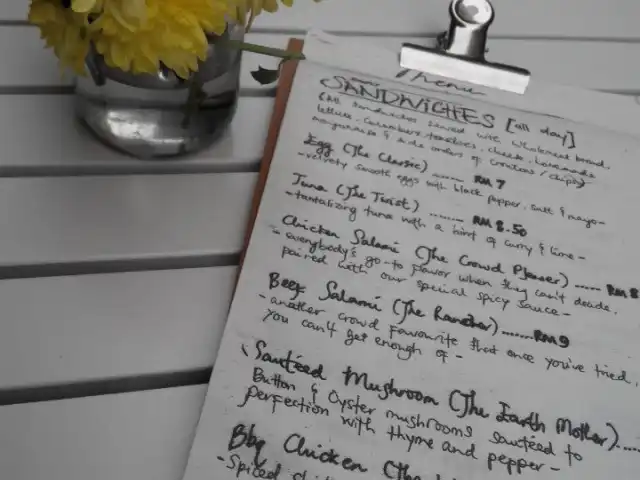 Menu
SANDWICHES [all day]
(All sandwiches served with wholemeal bread,
lettuce, cucumbers, tomatoes, cheese, homemade
mayonnaise & side orders of croutons / chips)
Egg (The Classic) ...... RM 7
- velvety smooth eggs with black pepper, salt & mayo -
Tuna (The Twist) ........ RM 8.50
- tantalizing tuna with a hint of curry & lime -
Chicken Salami (The Crowd Pleaser) ..... RM 8
- everybody's go-to flavor when they can't decide,
paired with our special spicy sauce -
Beef Salami (The Rancher) ....... RM 9
- another crowd favourite that once you've tried,
you can't get enough of -
Sautéed Mushroom (The Earth Mother) ....
Button & Oyster mushrooms sautéed to
perfection with thyme and pepper -
Bbq Chicken (The
- Spiced